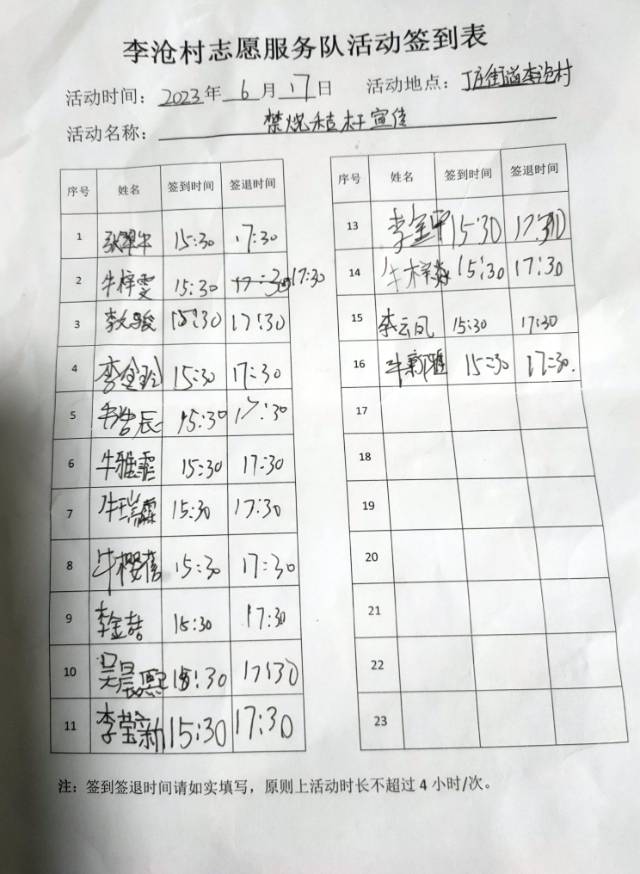 李沧村志愿服务队活动签到表
活动时间：2023年6月17日 活动地点：丁庄街道李沧村
活动名称：禁烧秸杆宣传
序号 姓名 签到时间 签退时间
1 张翠华 15:30 17:30
2 牛梓雯 15:30 17:30 17:30
3 李文骏 15:30 17:30
4 李金玲 15:30 17:30
5 浩辰 15:30 17:30
6 牛雅霏 15:30 17:30
7 牛瑞霖 15:30 17:30
8 牛樱蓓 15:30 17:30
9 李金喆 15:30 17:30
10 吴晨熙 15:30 17:30
11 李莹新 15:30 17:30
序号 姓名 签到时间 签退时间
13 李金 15:30 17:30
14 牛梓淼 15:30 17:30
15 李云凤 15:30 17:30
16 牛新雅 15:30 17:30.
17
18
19
20
21
22
23
注：签到签退时间请如实填写，原则上活动时长不超过 4 小时/次。